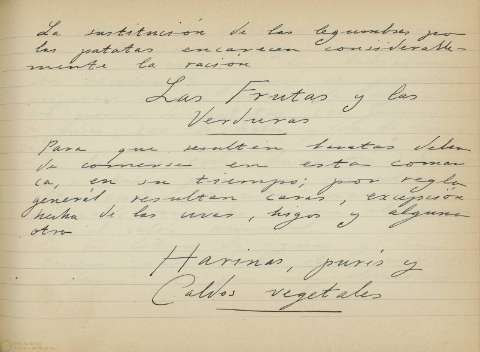 La sustitución de las legumbres por
las patatas encarecen considerable-
mente la ración
Las Frutas y las
Verduras
Para que resulten baratas deben
de comerse en esta comar
ca, en su tiempo; por regla
general resultan caras, excepción
hecha de las uvas, higos y alguna
otra
Harinas, purés y
Caldos vegetales